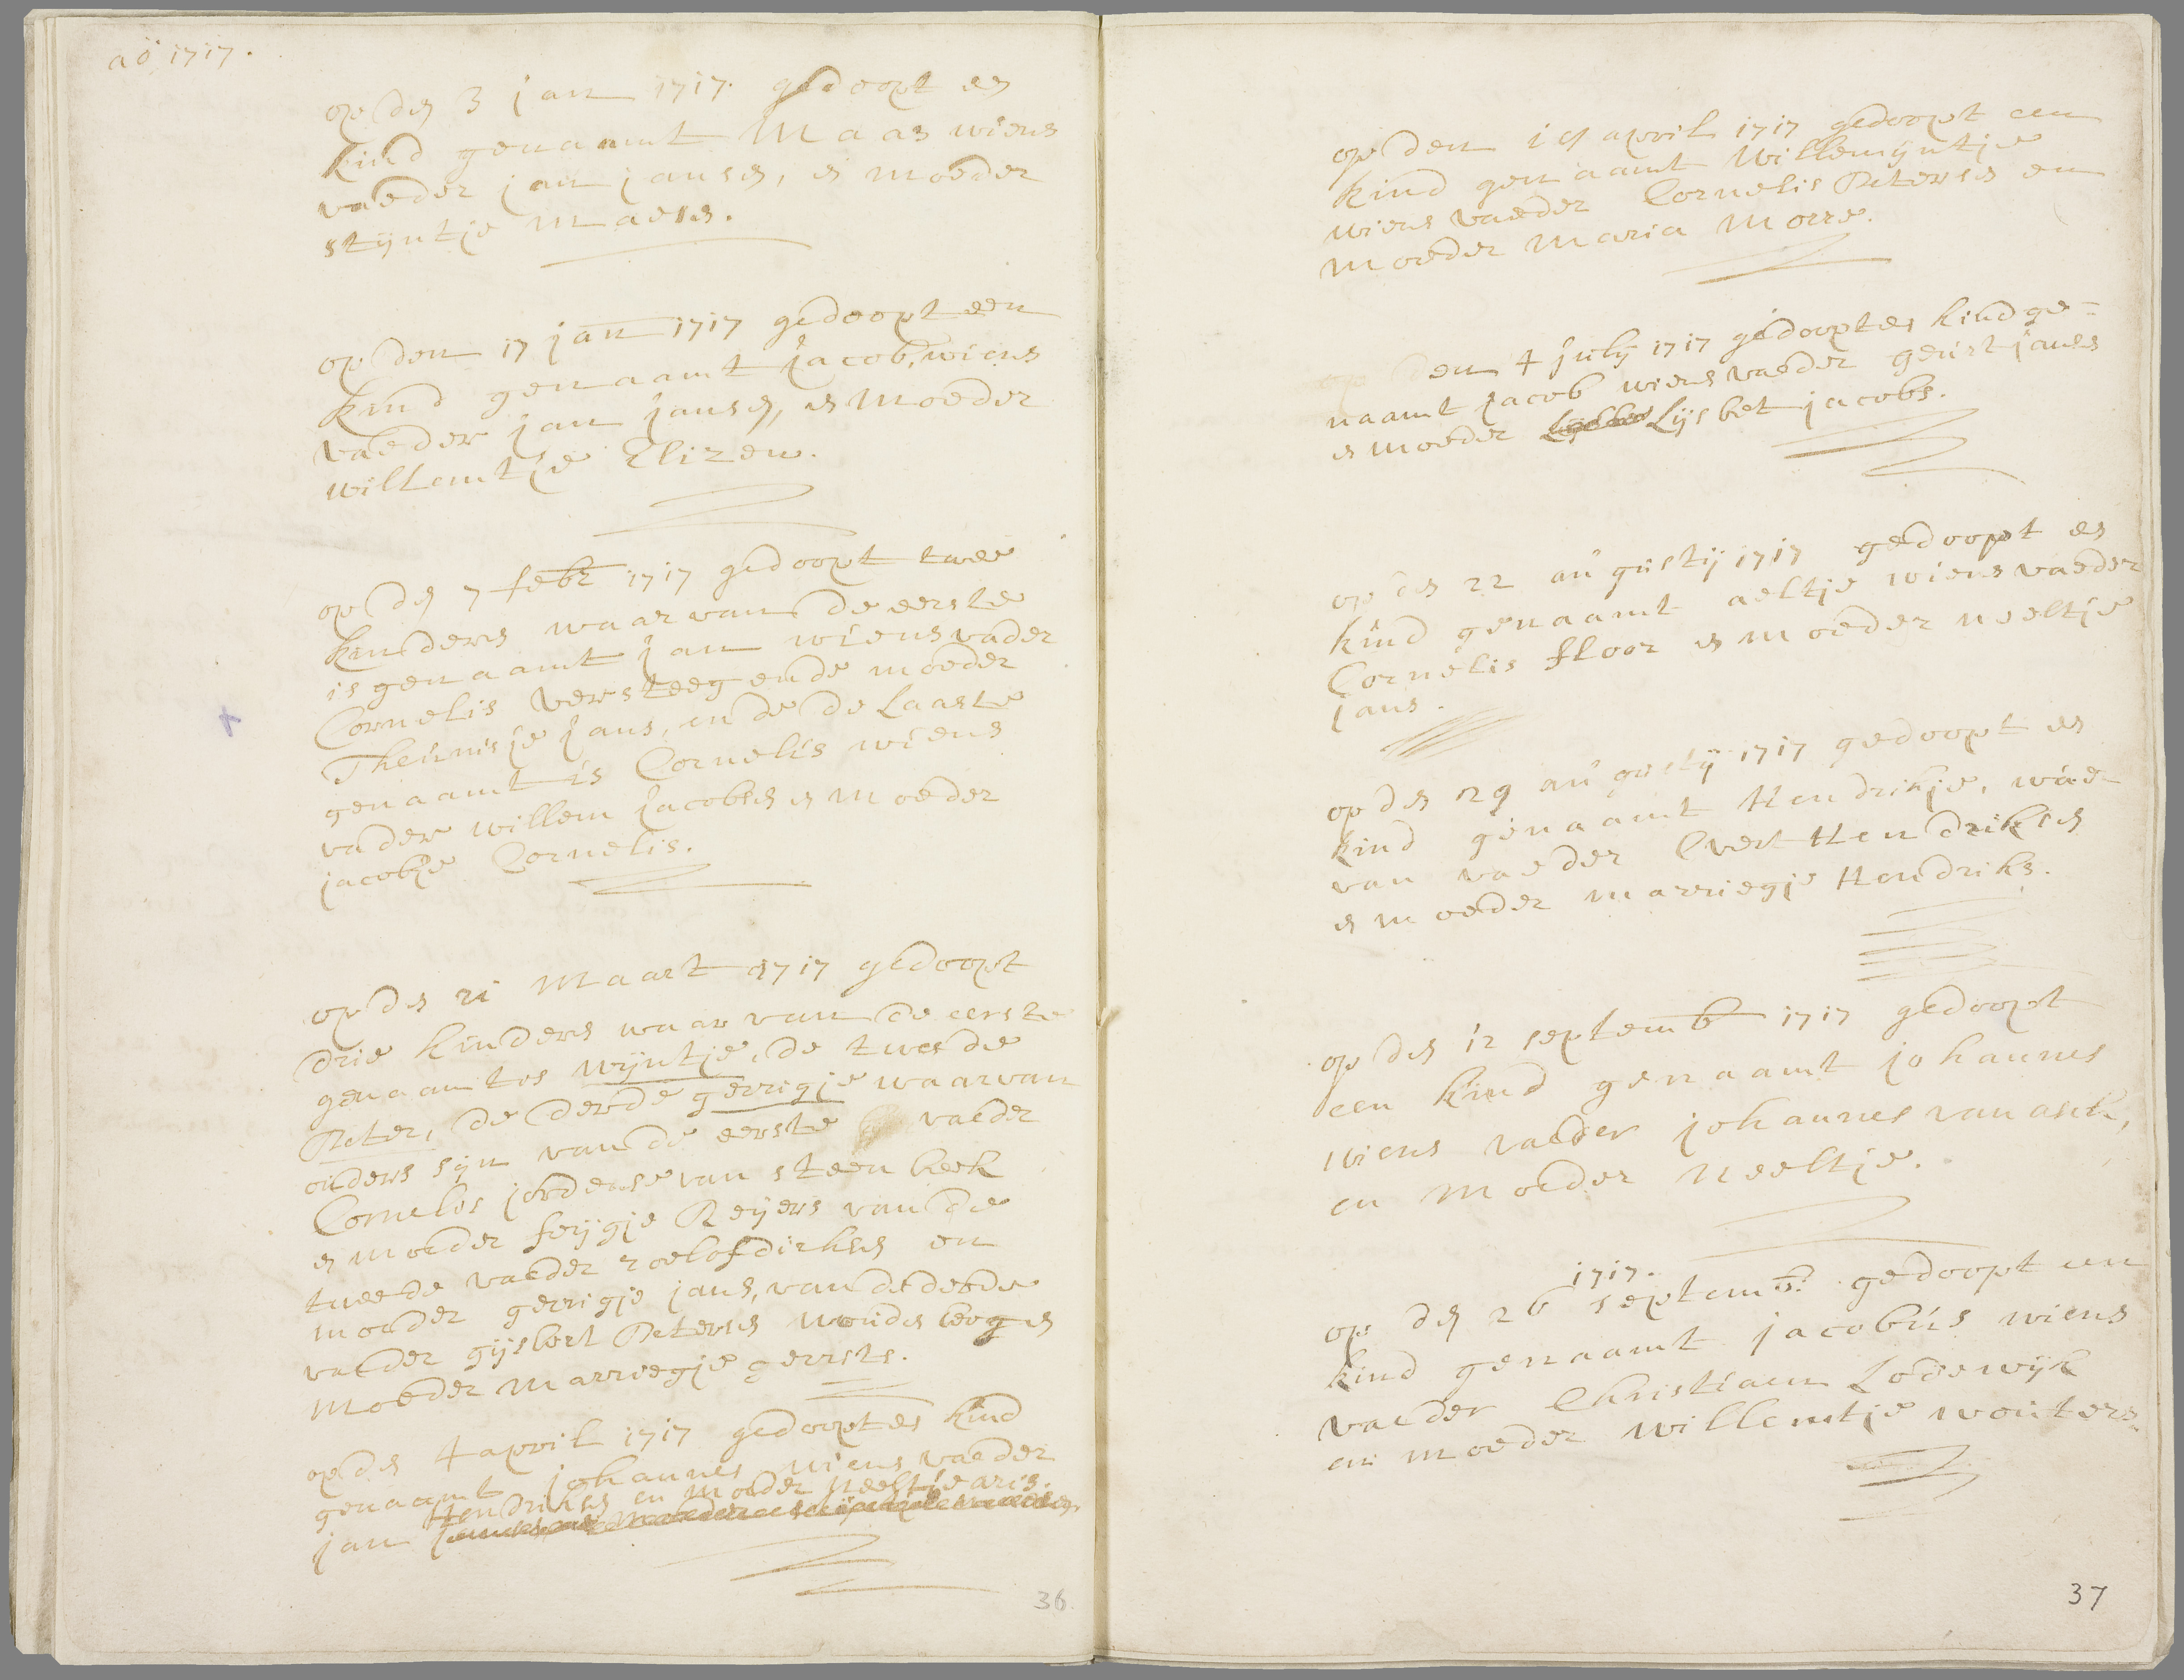 ao 1717.
op den 3 jan 1717. gedoopt en
kind genaamt Maas wiens
vaeder jan jansen, en moeder
stijntje Maess.
op den 17 jan 1717 gedoopt een
kind genaamt Jacob, wiens
vaeder jan jansen, en moeder
willemtje Elizen.
op den 7 febr 1717 gedoopt twee
kinders waar van de eerste
is genaamt Jan wiens vader
Cornelis versteeg ende moeder
Theunisje Jans, ende de laaste
genaamt is Cornelis wiens
vader willem Jacobsen en moeder
jacobje Cornelis.
op den 21 Maart 1717 gedoopt
drie kinders waar van de eerste
genaamt es wijntje, de tweede
Peter, de derde gerrigje waar van
ouders sijn van de eerste vaeder
Cornelis jordense van steenbeek
en moeder feijgje Reijers van de
tweede vaeder roelof dirksen en
moeder gerrigje jans, van de derde
vaeder gijsbert Petersen woudenberg en
moeder Marregje gerrets.
op den 4 april 1717 gedoopt en kind
genaamt johannes wiens vaeder
Hendriksen en moeder Neeltje aris.
jan
36.
op den 19 april 1717 gedoopt een
kind genaamt Willemijntje
wiens vaeder Cornelis Petersen en
moeder Maria Morre.
op den 4 july 1717 gedoopt en kind ge=
naamt Jacob wiens vaeder geurt jansen
en moeder Lijsbet jacobs.
op den 22 augustij 1717 gedoopt en
kind genaamt aeltje wiens vaeder
Cornelis floor en moeder neeltje
jans.
op den 29 augustij 1717 gedoopt en
kind genaamt Hendrikje, waer
van vaeder Evert Hendriksen
en moeder marriegje Hendriks.
op den 12 septemb 1717 gedoopt
een kind genaamt johannes
wiens vaeder johannes van asch,
en moeder Neeltje.
1717.
op den 26 septemb: gedoopt een
kind genaamt jacobus wiens
vaeder Christiaen Lodewijk
en moeder willemtje wouters.
37